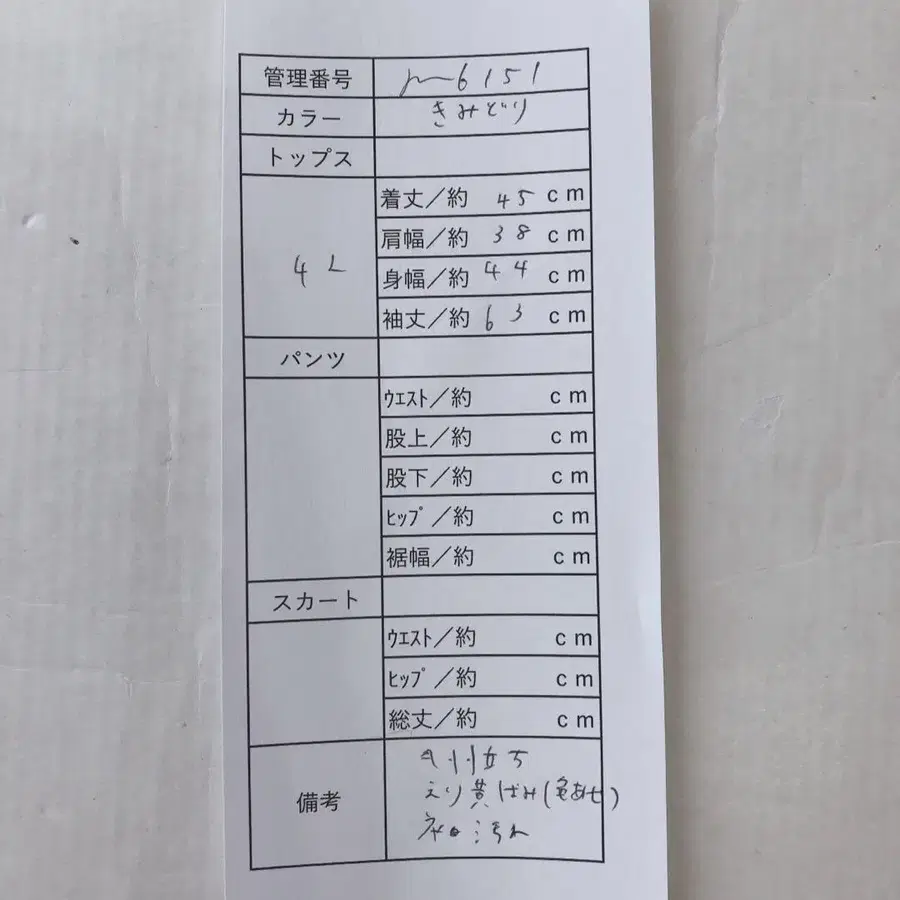 管理番号 m6151
カラー きみどり
トップス
4L
着丈／約 45 cm
肩幅／約 38 cm
身幅／約 44 cm
袖丈／約 63 cm
パンツ
ｳｴｽﾄ／約 cm
股上／約 cm
股下／約 cm
ﾋｯﾌﾟ／約 cm
裾幅／約 cm
スカート
ｳｴｽﾄ／約 cm
ﾋｯﾌﾟ／約 cm
総丈／約 cm
備考
えり黄ばみ(色あせ)
袖口汚れ